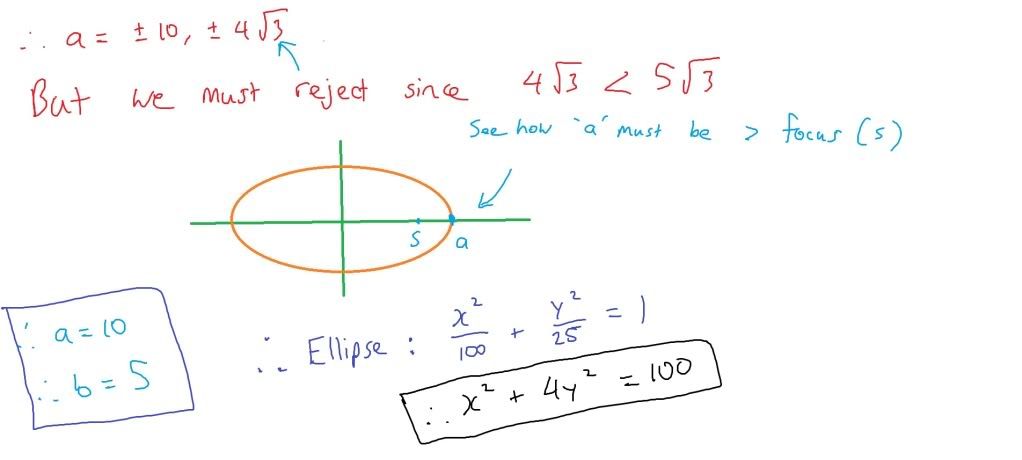 ∴ a = ± 10, ± 4√3
But we must reject since 4√3 < 5√3
See how 'a' must be > focus (s)
S a
∴ a = 10
∴ b = 5
∴ Ellipse : x²/100 + y²/25 = 1
∴ x² + 4y² = 100